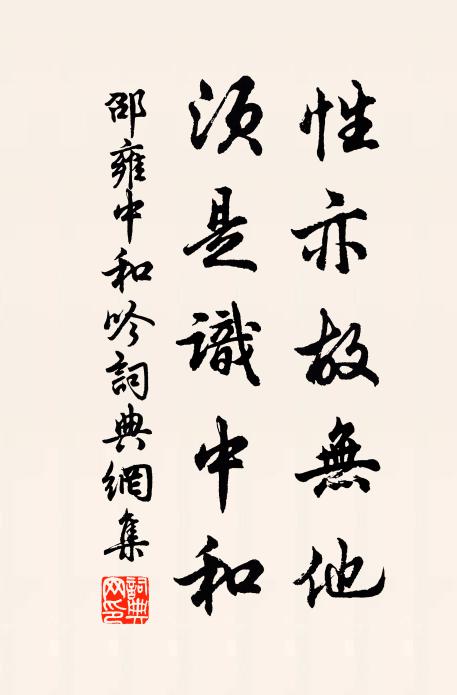 性亦故無他
須是識中和
邵雍中和吟詞典網集
詞典網印